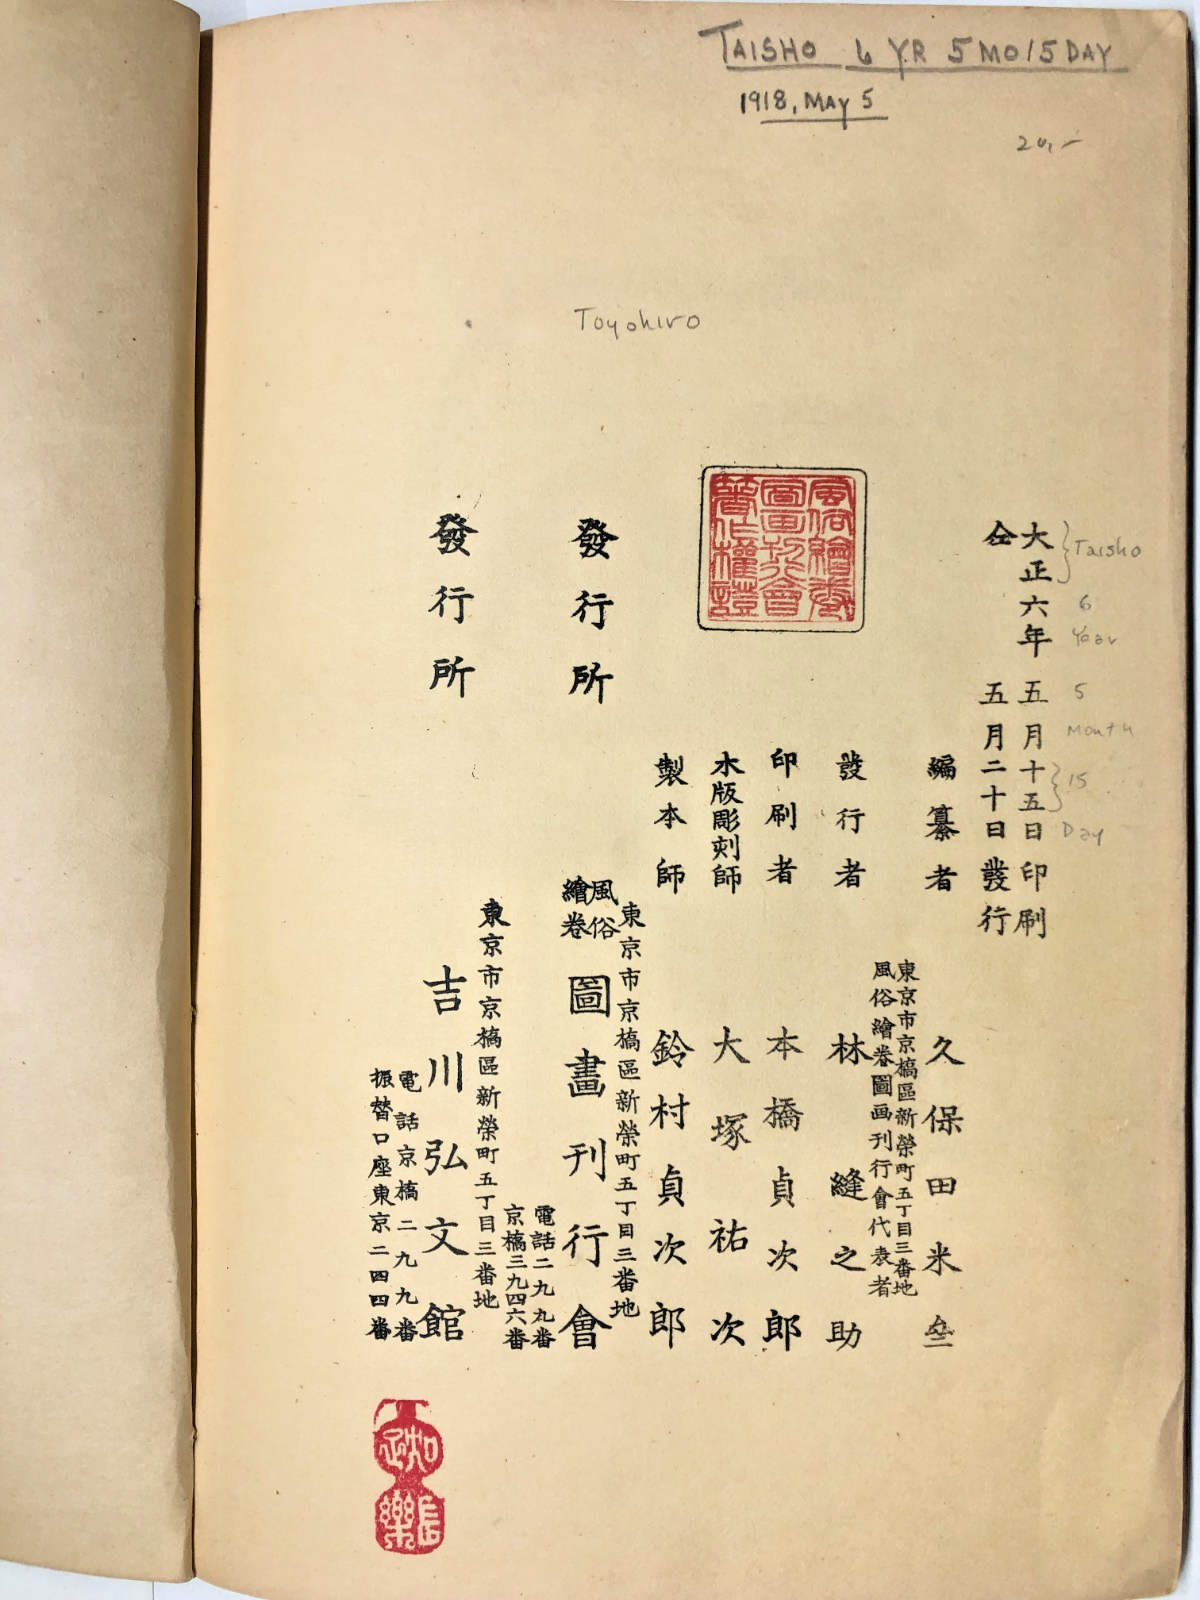 TAISHO 6 YR 5 MO 15 DAY
1918, MAY 5
Toyohiro
大正六年五月十五日印刷
仝五月二十日發行
Taisho
6
Year
5
Month
15
Day
編纂者 久保田米斎
東京市京橋區新榮町五丁目三番地
風俗繪卷圖画刊行會代表者
發行者 林縫之助
印刷者 本橋貞次郎
木版彫刻師 大塚祐次
製本師 鈴村貞次郎
風俗繪卷圖画刊行會著作權證
東京市京橋區新榮町五丁目三番地
發行所 風俗繪卷圖畫刊行會
電話二九九番
京橋三九四六番
東京市京橋區新榮町五丁目三番地
發行所 吉川弘文館
電話京橋二九九番
振替口座東京二四四番
知足
長樂